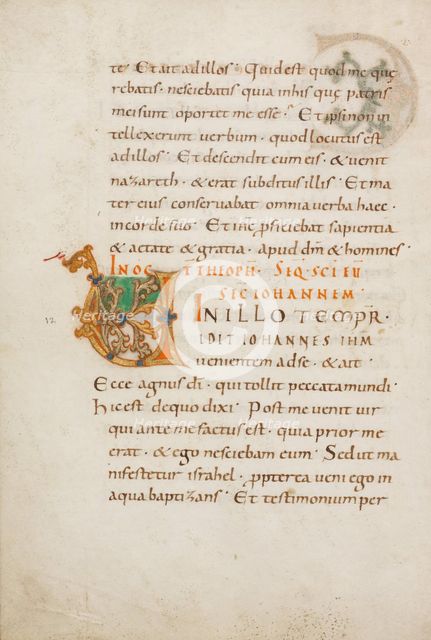 te. Et ait ad illos. Quid est quod me quę
rebatis. nesciebatis quia in his quę patris
mei sunt oportet me esse. Et ipsi non in
tellexerunt verbum. quod locutus est
ad illos. Et descendit cum eis. & venit
nazareth. & erat subditus illis. Et ma
ter eius conservabat omnia verba haec.
in corde suo. Et ihc proficiebat sapientia
& aetate & gratia. apud dm & homines
IN OCT THEOPH. SEQ. SCI EU
SEC IOHANNEM
IN ILLO TEMPR.
VIDIT IOHANNES IHM
venientem ad se. & ait
12
Ecce agnus di. qui tollit peccata mundi
hic est de quo dixi. Post me venit vir
qui ante me factus est. quia prior me
erat. & ego nesciebam eum. Sed ut ma
nifestetur israhel. propterea veni ego in
aqua baptizans. Et testimonium per
Heritage Heritage Heritage